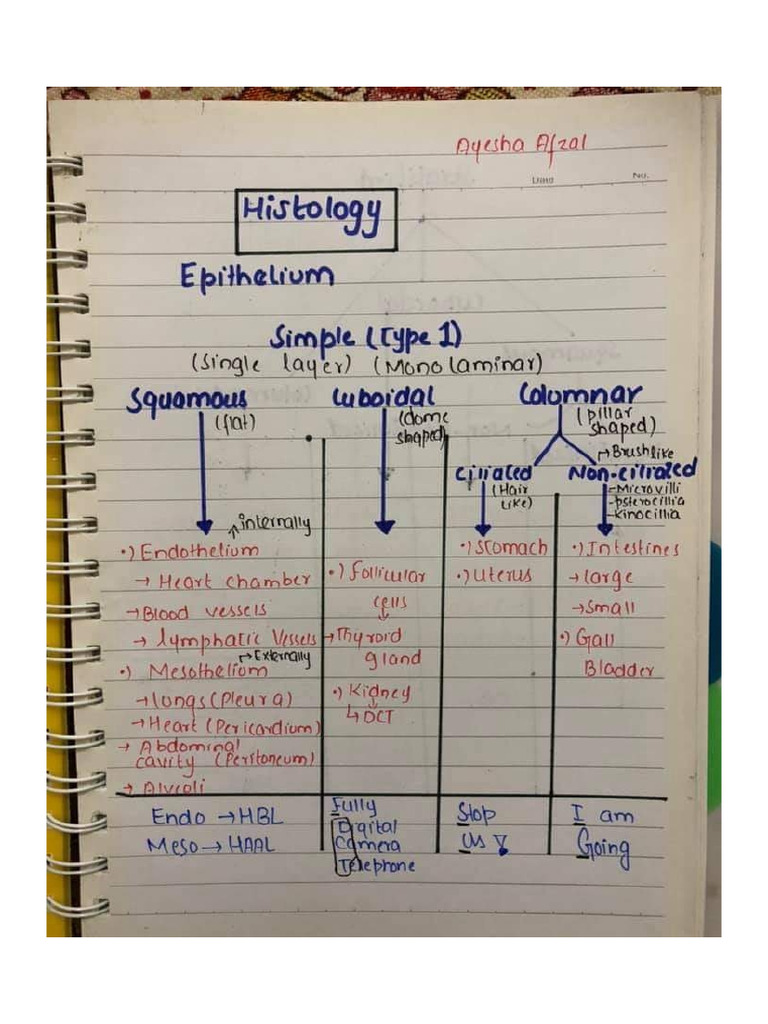 Ayesha Afzal
Date No.
Histology
Epithelium
Simple (Type 1)
(Single layer) (Monolaminar)
Squamous
(flat)
Cuboidal
(dome
shaped)
Columnar
(pillar
shaped)
Ciliated
(Hair
Like)
→Brushlike
Non-ciliated
-Microvilli
-psterocillia
-kinocillia
internally
•) Endothelium
→ Heart chamber
→Blood vessels
→ lymphatic Vessels
→Externally
•) Mesothelium
→longs(Pleura)
→Heart(Pericardium)
→ Abdominal
cavity (Peritoneum)
→ Alveoli
•) Follicular
cells
→Thyroid
gland
•) Kidney
↳ DCT
•) Stomach
•) Uterus
•) Intestines
→large
→Small
•) Gall
Bladder
Endo →HBL
Meso→ HAAL
Fully
Digital
Camera
Telephone
Stop
Us
I am
Going